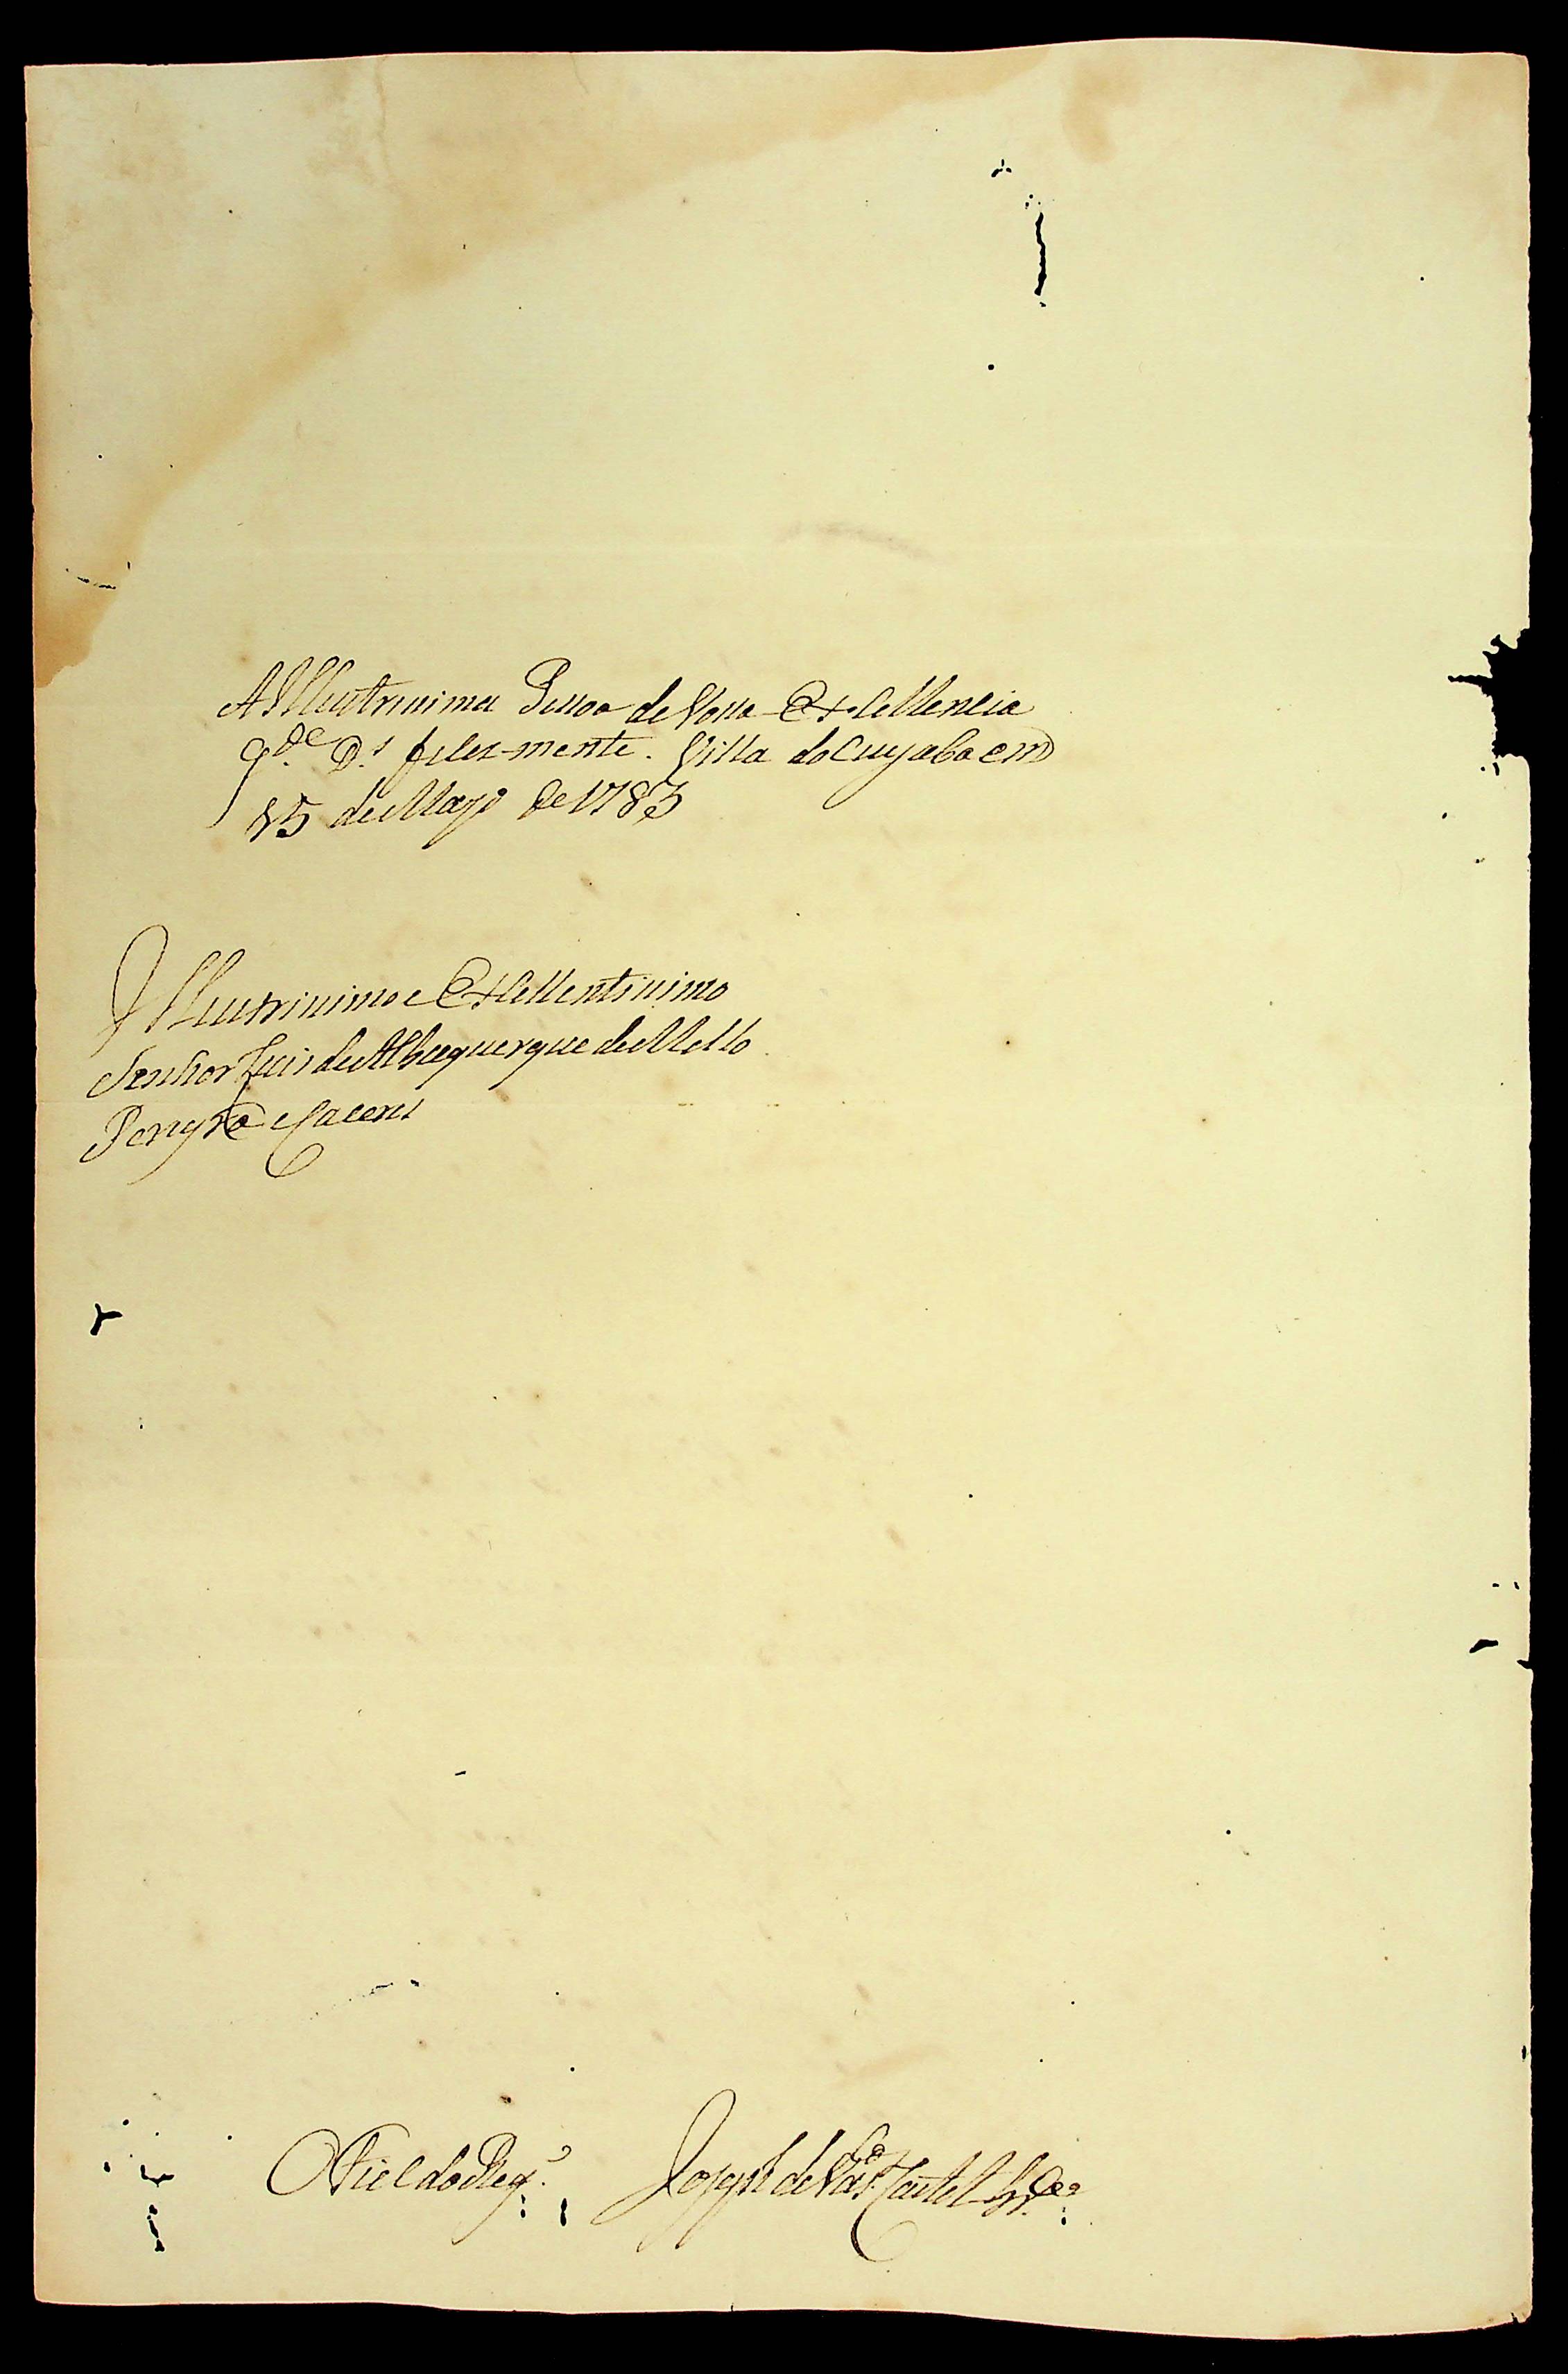 A Illustrissima Pessoa de Vossa Excellencia
g.de D.s felis-mente. Villa do Cuyaba em
15 de Mayo de 1783
Illustrissimo e Excellentissimo
Senhor Luis de Albuquerque de Mello
Pereyra e Caceres
O Fiel do Reg.o Joseph de Vas.